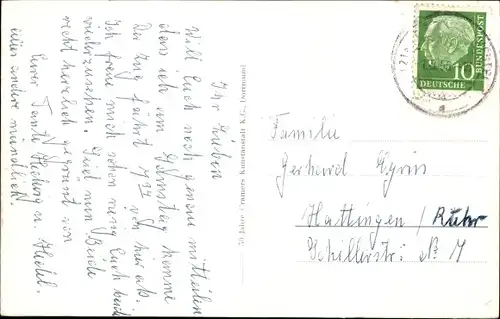 Ihr Lieben
Will Euch noch genau mitteilen
das ich am Samstag komme
Der Zug fährt von hier ab.
Ich freue mich schon rung Euch beide
wiederzusehen. Seid nun Beide
recht herzlich gegrüsst von
Eurer Tante Hedwig u.
alles andere mündlich!
50 Jahre Cramers Kunstanstalt K.G., Dortmund
DEUTSCHE BUNDESPOST
10
Familie
Gerhard
Hattingen / Ruhr
Schillerstr: